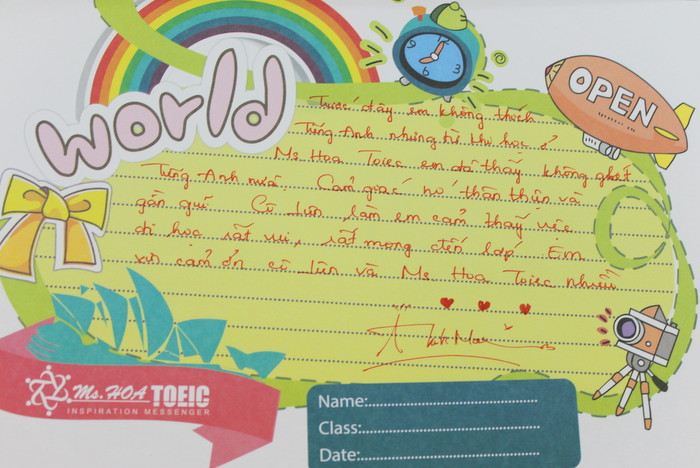 world
OPEN
Trước đây em không thích
Tiếng Anh nhưng từ khi học ở
Ms Hoa Toiec em đã thấy không ghét
Tiếng Anh nữa. Cảm giác nó thân thiện và
gần gũi. Cô Liên làm em cảm thấy việc
đi học rất vui, rất mong đến lớp. Em
xin cảm ơn cô Liên và Ms Hoa Toiec nhiều
Ms. HOA TOEIC
INSPIRATION MESSENGER
Name:
Class:
Date: